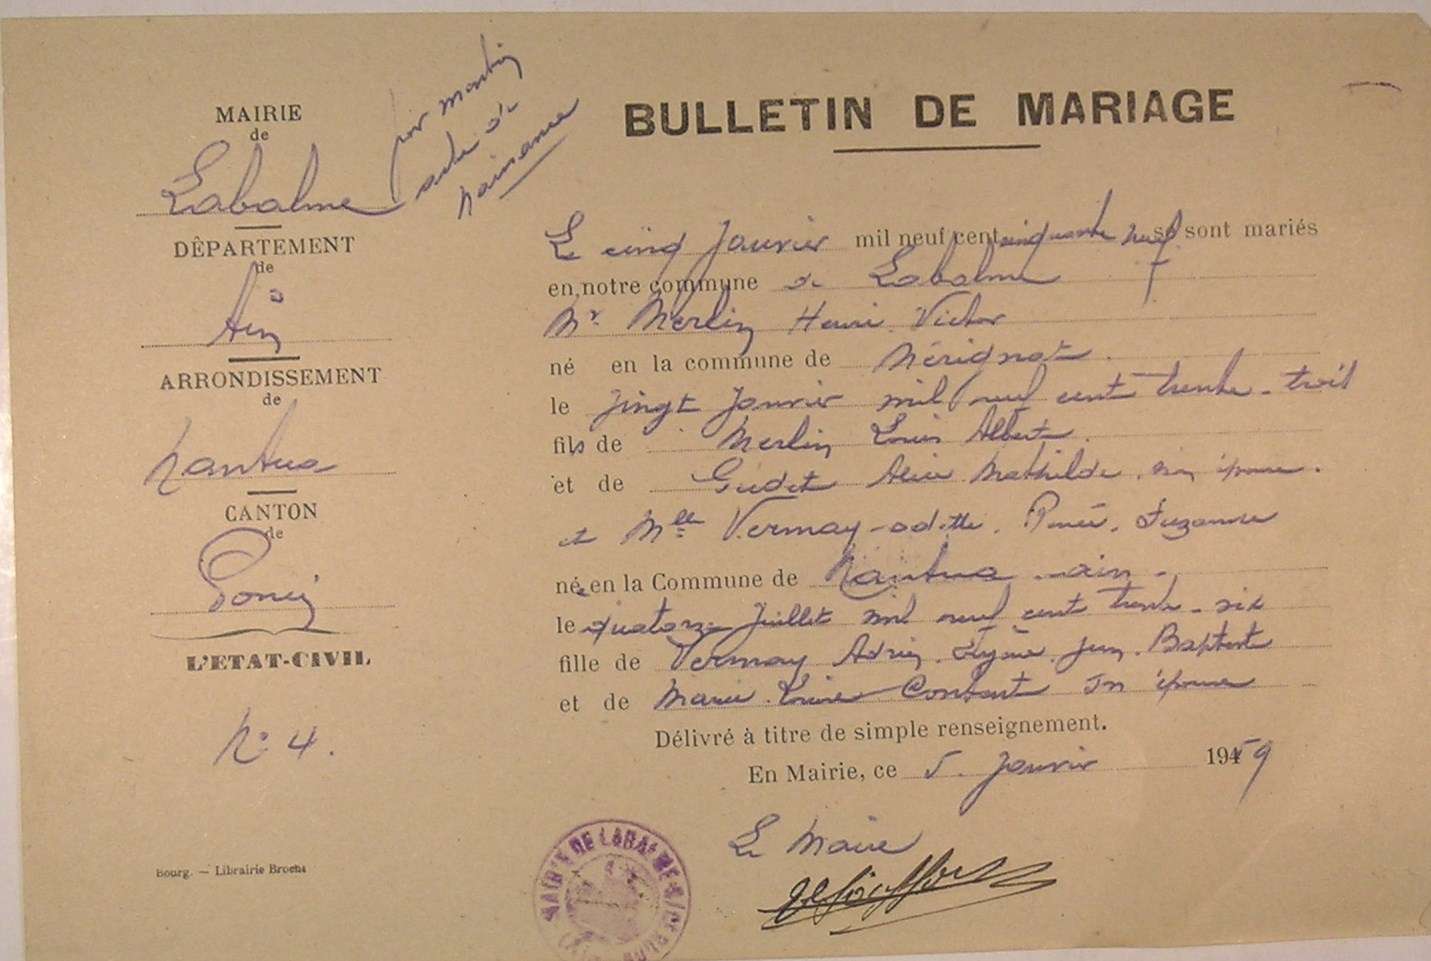 MAIRIE
de
Labalme
DÊPARTEMENT
de
Ain
ARRONDISSEMENT
de
Nantua
CANTON
de
Poncin
L'ETAT-CIVIL
No 4.
Bourg. — Librairie Brochs
acte de
naissance
BULLETIN DE MARIAGE
Le cinq Janvier mil neuf cent cinquante neuf se sont mariés
en notre commune de Labalme
Mr Merlin Henri Victor
né en la commune de Mérignat.
le Vingt Janvier mil neuf cent trente-trois
fils de Merlin Louis Albert.
et de Gudet Alice Mathilde. son épouse.
et Mlle Vermay-odette. Renée. Suzanne
née en la Commune de Nantua - ain -
le quatorze Juillet mil neuf cent trente-six
fille de Vermay Adrien. Jean. Baptiste
et de Marie-Louise Constant son épouse
Délivré à titre de simple renseignement.
En Mairie, ce 5. Janvier 1959
Le Maire
MAIRIE DE LABALME-S/CERDON